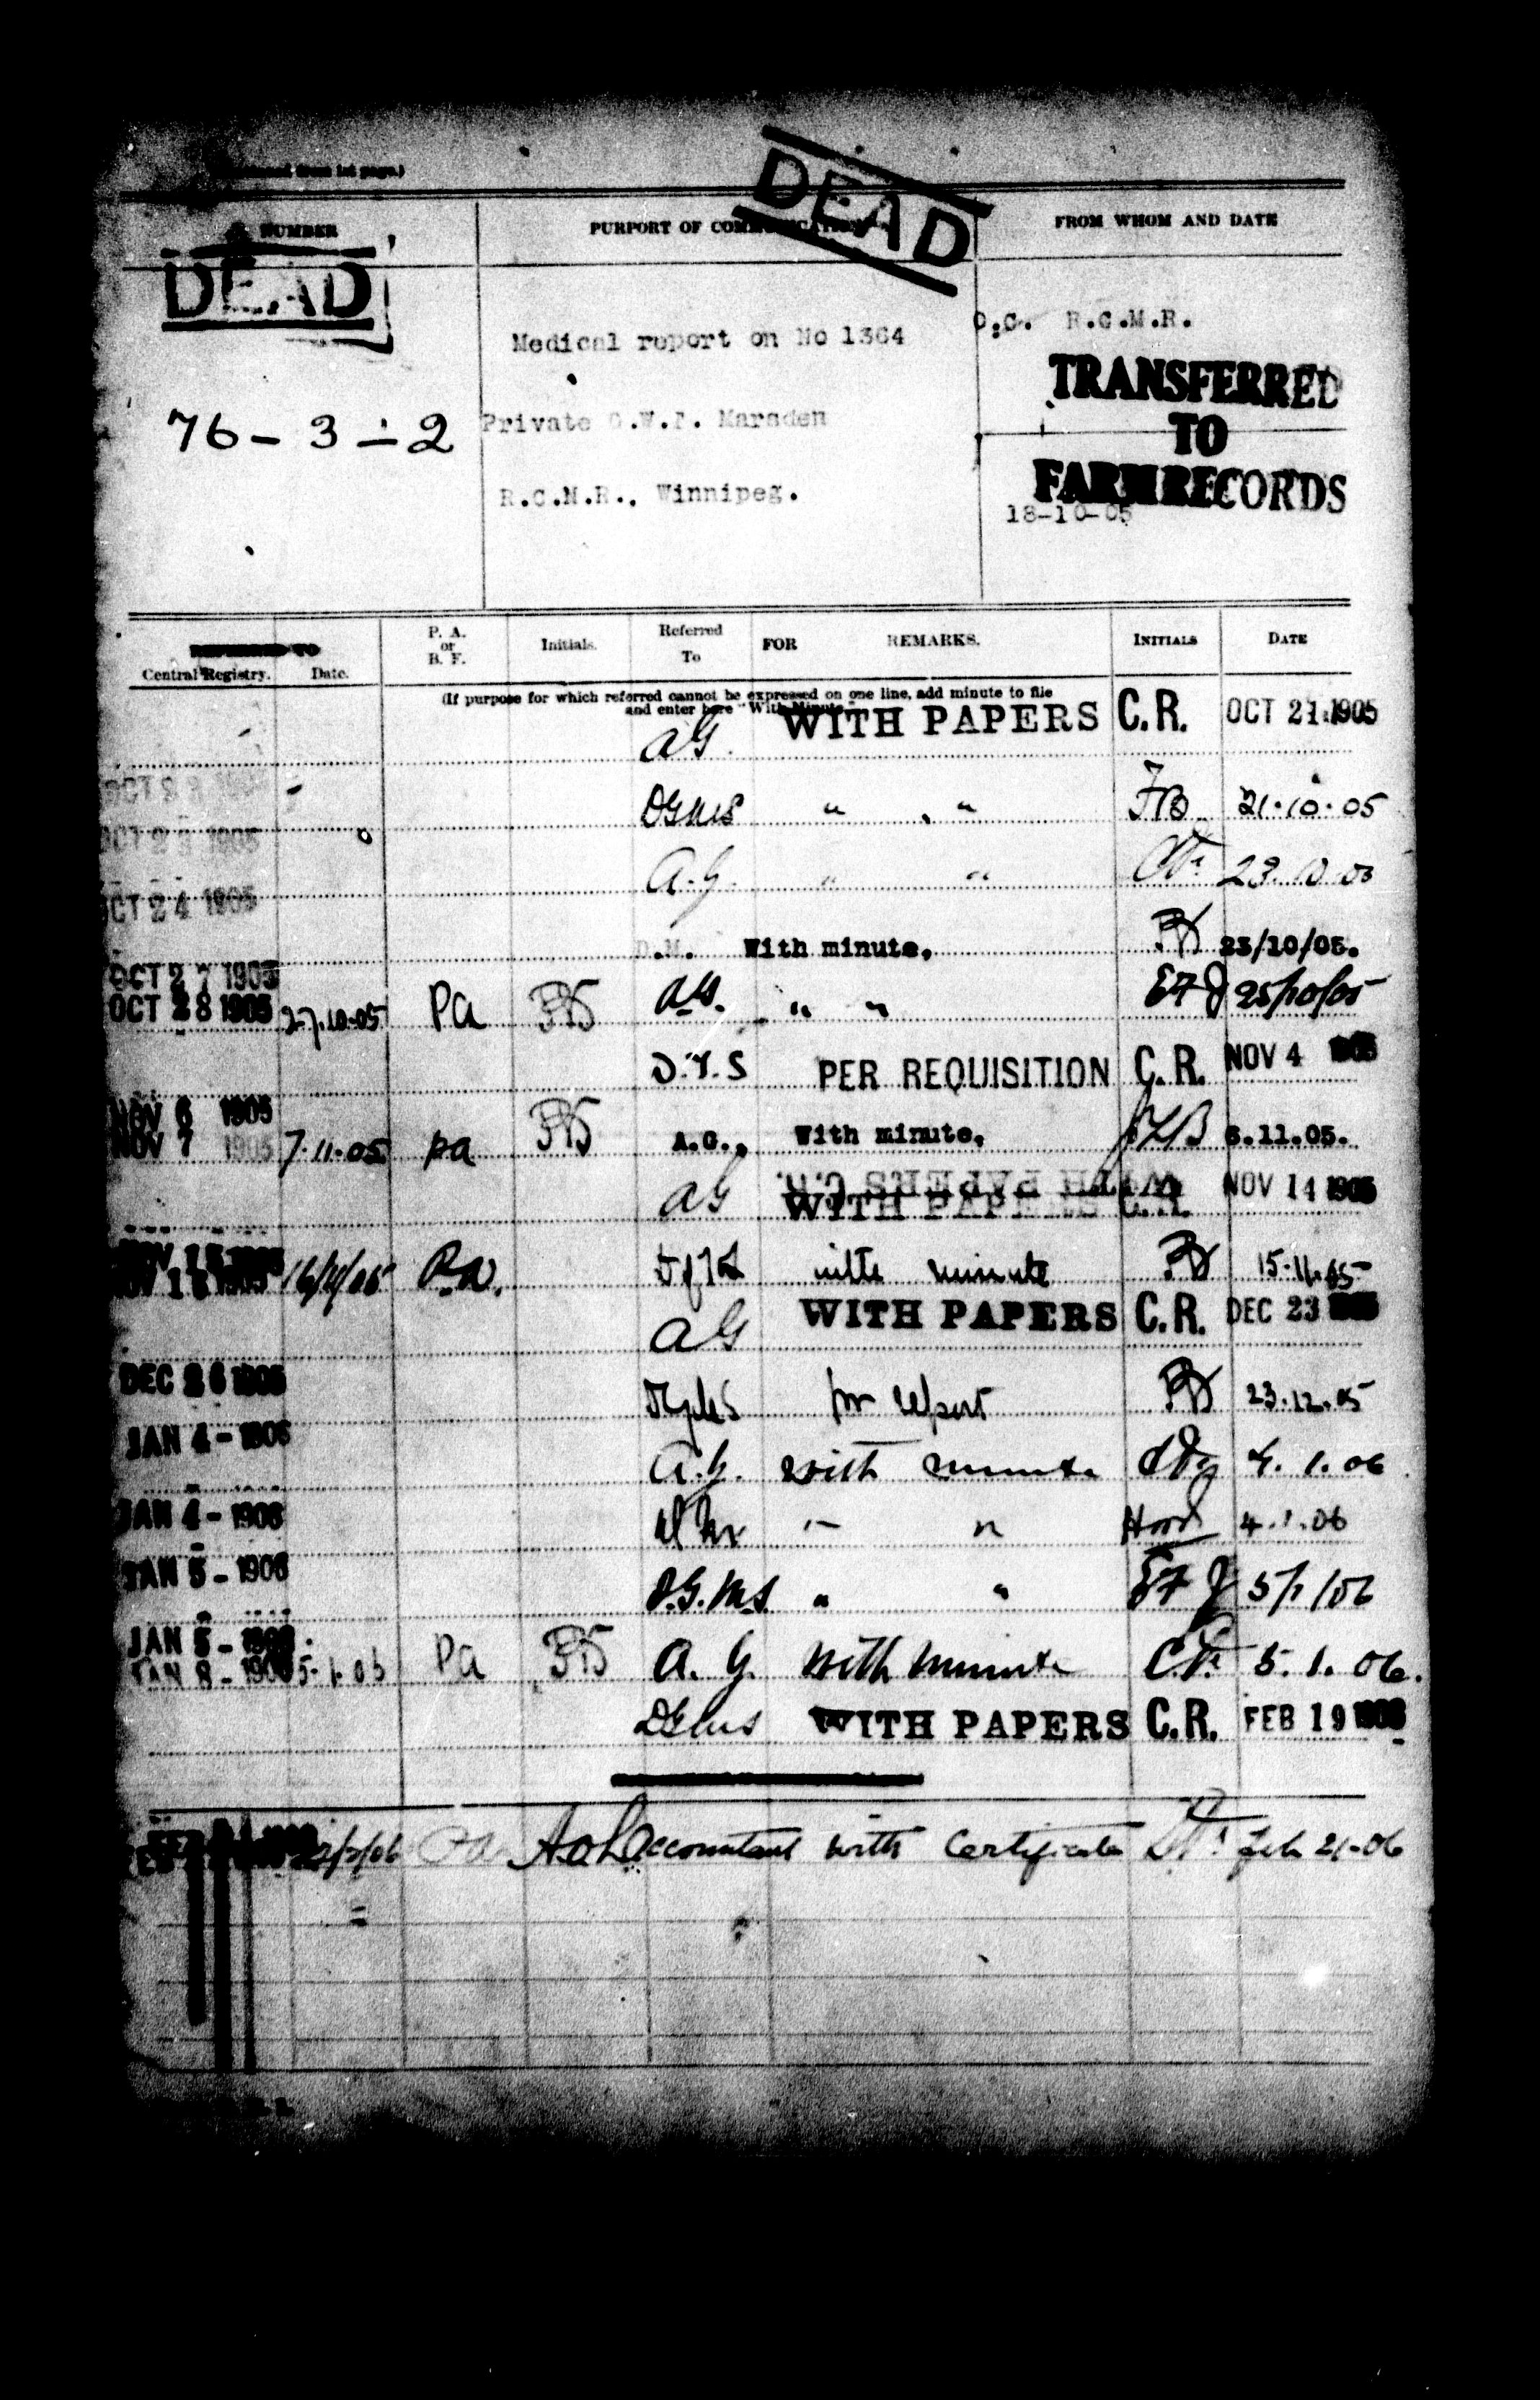 from 1st page.)
DEAD
NUMBER
PURPORT OF
FROM WHOM AND DATE
DEAD
Medical report on No 1364
O.C. R.C.M.R.
TRANSFERRED
TO
FARM RECORDS
76 - 3 - 2
Private Marsden
R.C.M.R., Winnipeg.
18-10-05
REFERRED TO
Central Registry. Date.
P. A. or B. F.
Initials.
Referred To
FOR REMARKS.
INITIALS
DATE
(If purpose for which referred cannot be expressed on one line, add minute to file
and enter here "With Minute."
AG. WITH PAPERS C.R. OCT 21 1905
DGMS " " 21.10.05
OCT 23 1905 A.G. " "
OCT 24 1905 D.M. With minute. 23/10/05.
OCT 27 1905
OCT 28 1905 27.10.05 Pa A.G. " " EFJ 25/10/05
PER REQUISITION C.R. NOV 4 1905
NOV 6 1905
NOV 7 1905 7.11.05 pa A.G., With minute. 6.11.05.
AG WITH PAPERS C.R. NOV 14 1905
16/11/05 with minute 15.11.05
AG WITH PAPERS C.R. DEC 23 1905
DEC 26 1905 for report 23.12.05
JAN 4 - 1906 A.G. with minute 4.1.06
JAN 4 - 1906 " " 4.1.06
JAN 5 - 1906 D.G.M.S. " " EFJ 5/1/06
JAN 5 - 1906
JAN 8 - 1906 Pa A.G. with minute 5.1.06.
DGMS WITH PAPERS C.R. FEB 19 1906
Accountant with Certificate Feb 21-06